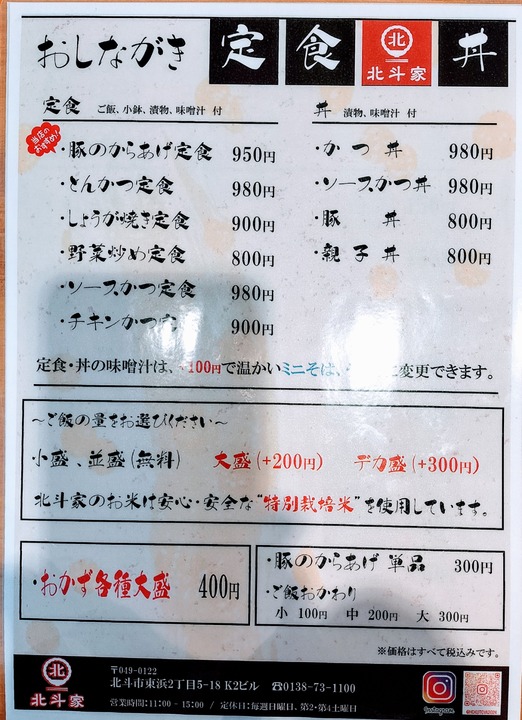 おしながき 定 食 北 北斗家 丼
定食 ご飯、小鉢、漬物、味噌汁 付
当店のおすすめ!
・豚のからあげ定食 950円
・とんかつ定食 980円
・しょうが焼き定食 900円
・野菜炒め定食 800円
・ソースかつ定食 980円
・チキンかつ定 900円
丼 漬物、味噌汁 付
・かつ丼 980円
・ソースかつ丼 980円
・豚丼 800円
・親子丼 800円
定食・丼の味噌汁は、+100円で温かいミニそば、 に変更できます。
〜ご飯の量をお選びください〜
小盛、並盛(無料) 大盛(+200円) デカ盛(+300円)
北斗家のお米は安心・安全な"特別栽培米"を使用しています。
・おかず各種大盛 400円
・豚のからあげ 単品 300円
・ご飯おかわり
小 100円 中 200円 大 300円
※価格はすべて税込みです。
北
北斗家
〒049-0122
北斗市東浜2丁目5-18 K2ビル ☎0138-73-1100
営業時間:11:00 - 15:00 / 定休日:毎週日曜日、第2・第4土曜日
Instagram